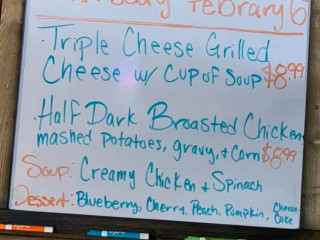 February 6
·Triple Cheese Grilled
Cheese w/ Cup of Soup $8.99
·Half Dark Broasted Chicken
mashed potatoes, gravy, + corn $8.99
Soup: Creamy Chicken + Spinach
Dessert: Blueberry, Cherry, Peach, Pumpkin, Cheese
Cake